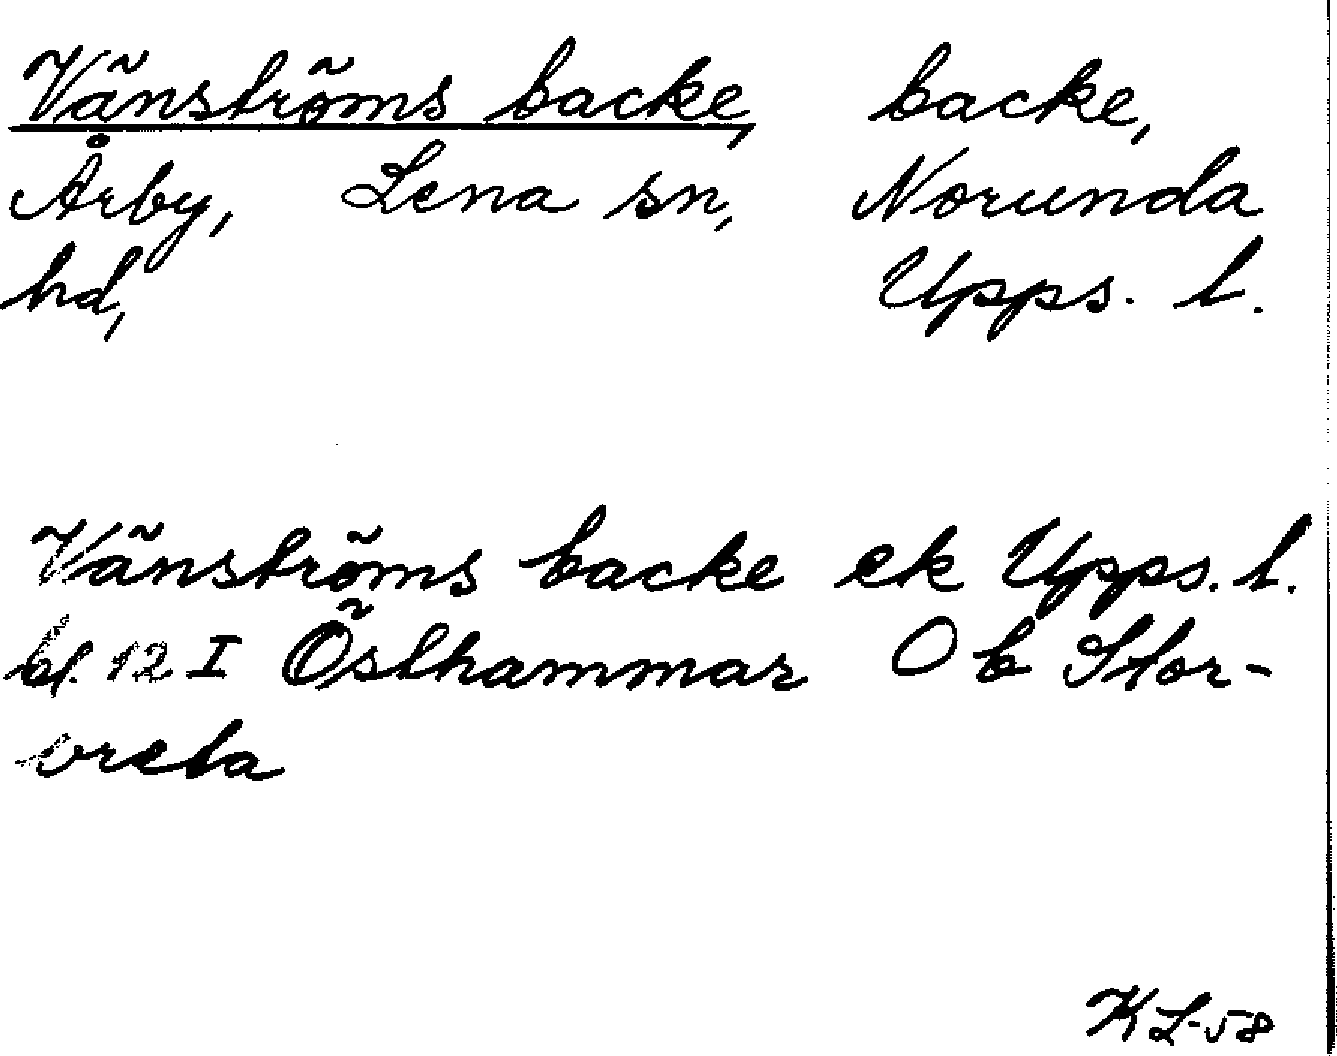 Vänströms backe, backe,
Årby, Lena sn, Norunda
hd, Upps. l.
Vänströms backe ek Upps. l.
bl. 12 I Östhammar O b Stor-
vreta
KL-58